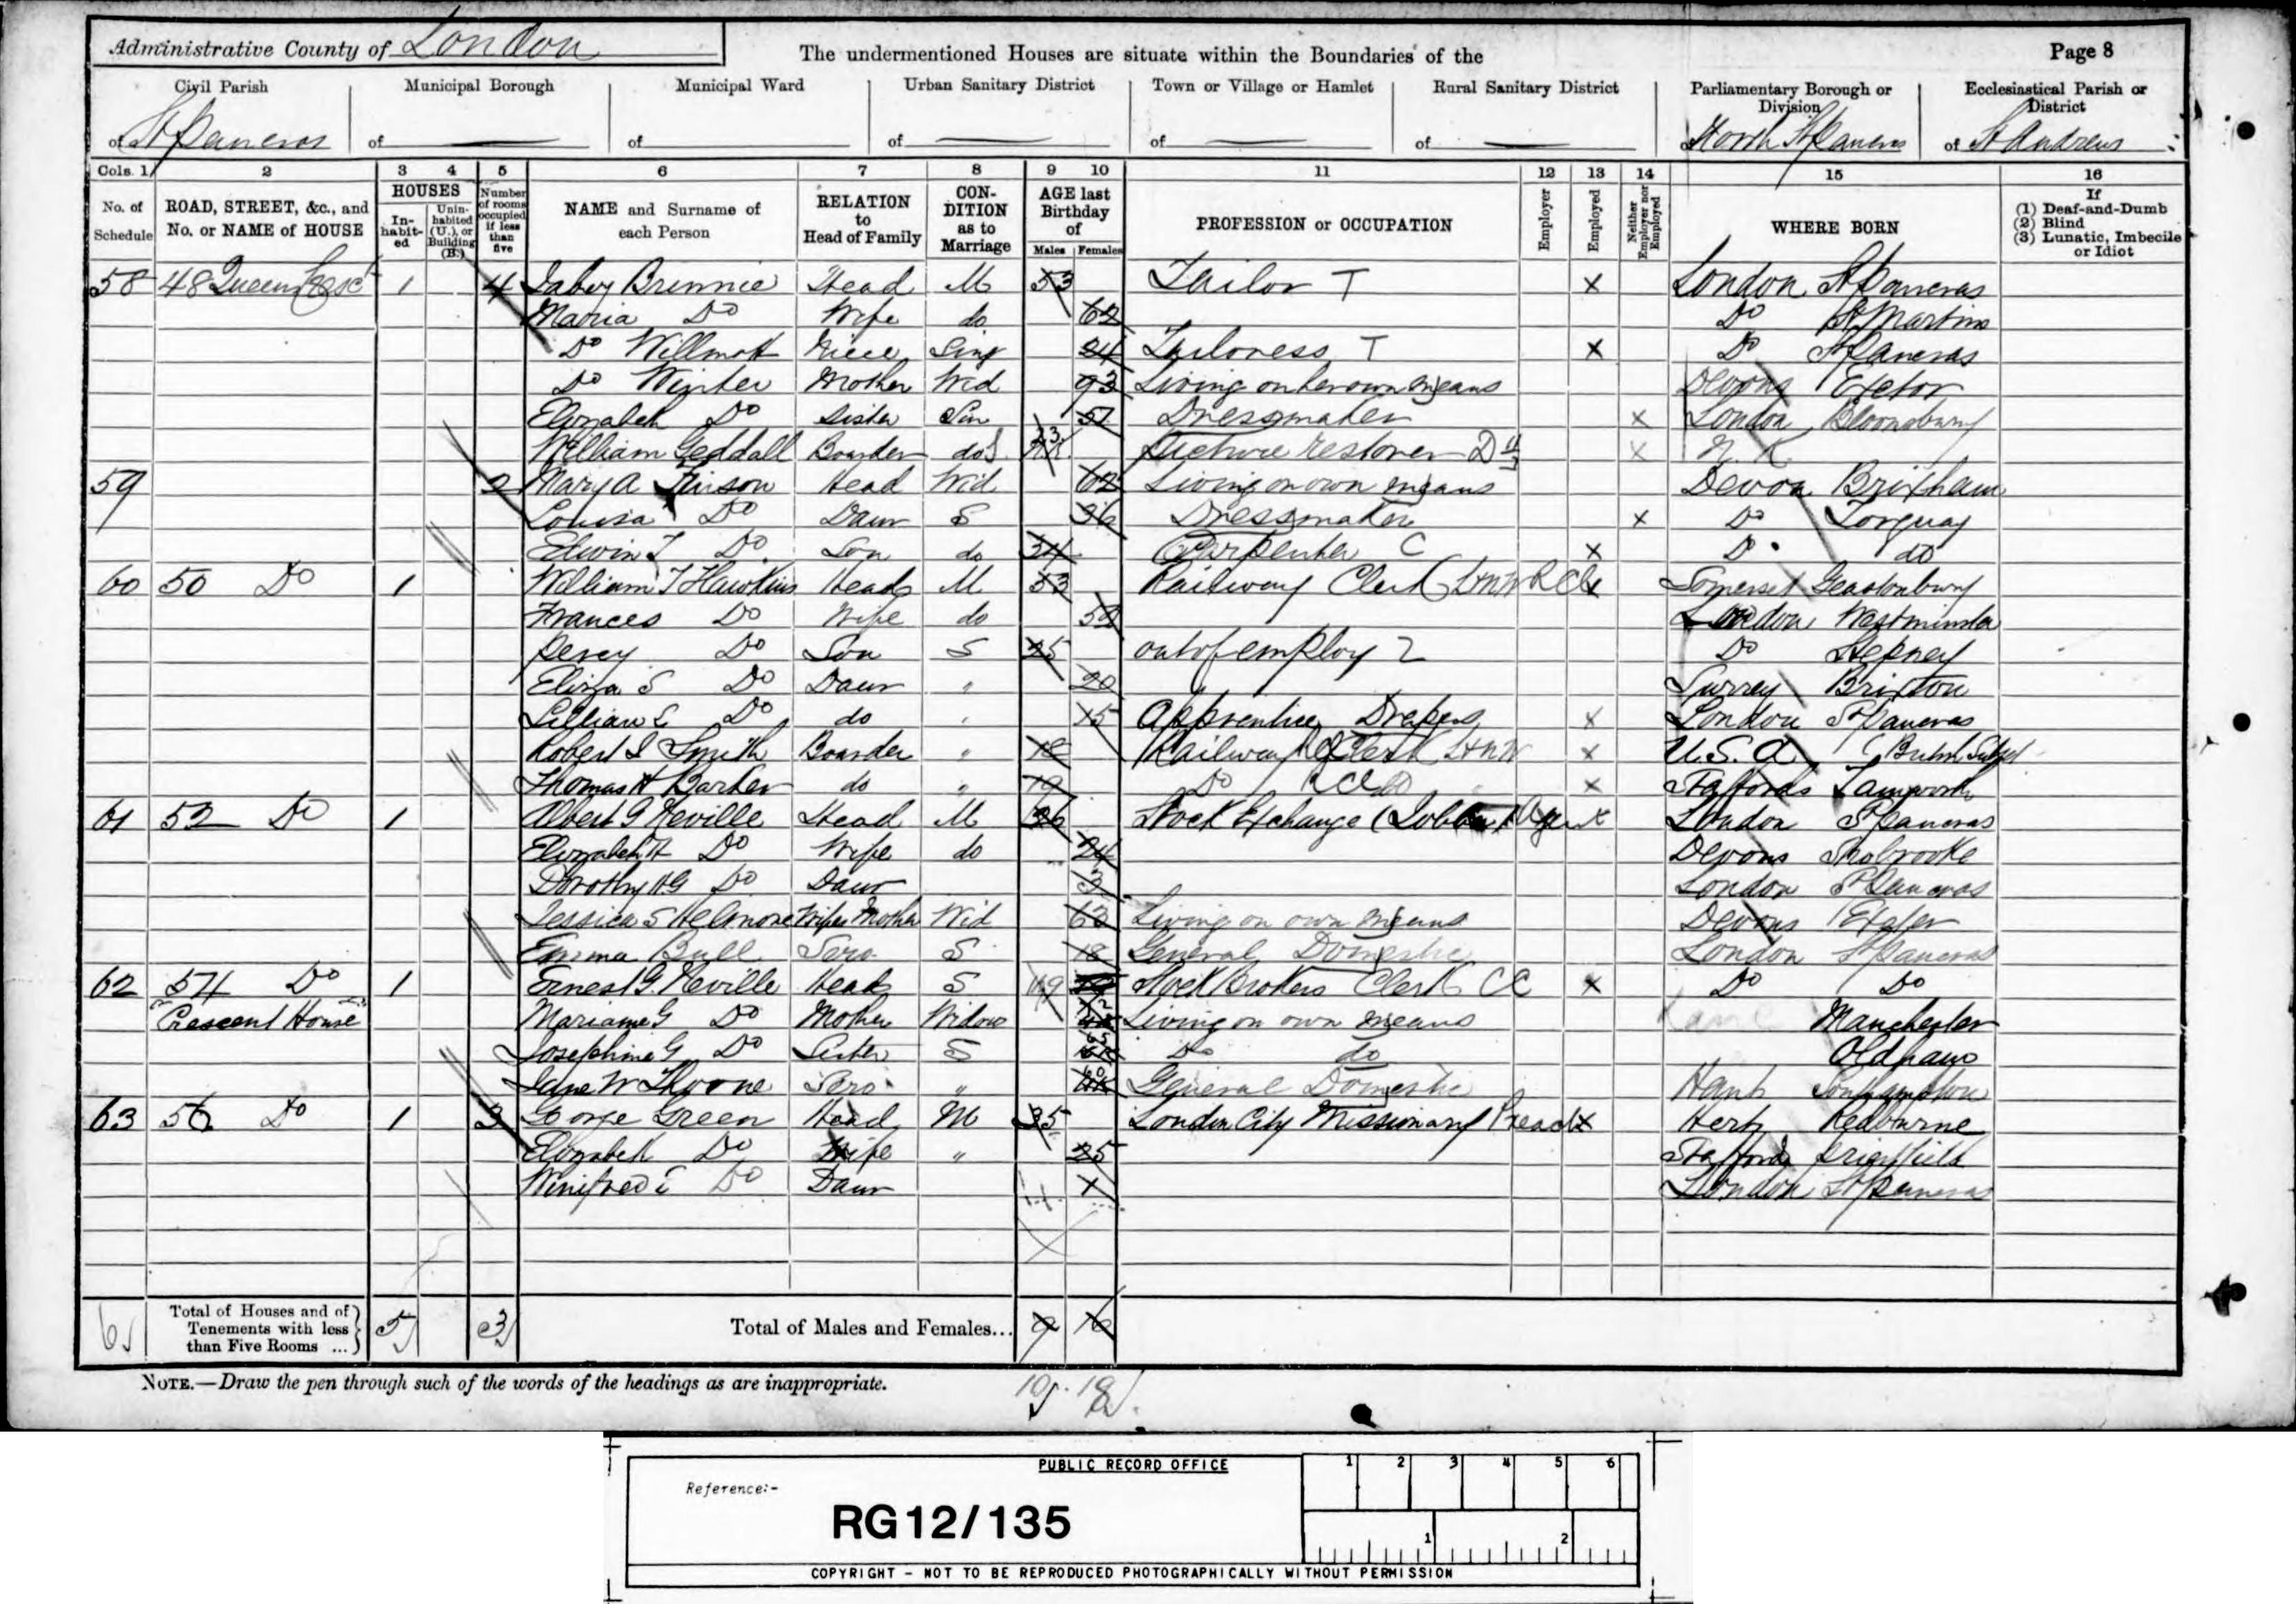 Administrative County of London
The undermentioned Houses are situate within the Boundaries of the
Page 8
Civil Parish
Municipal Borough
Municipal Ward
Urban Sanitary District
Town or Village or Hamlet
Rural Sanitary District
Parliamentary Borough or Division
Ecclesiastical Parish or District
of St Pancras
of
of
of
of
of
North St Pancras
of St Andrews
Cols. 1 2 3 4 5 6 7 8 9 10 11 12 13 14 15 16
No. of Schedule
ROAD, STREET, &c., and No. or NAME of HOUSE
HOUSES
In-habit-ed
Unin-habited (U.), or Building (B.)
Number of rooms occupied if less than five
NAME and Surname of each Person
RELATION to Head of Family
CON-DITION as to Marriage
AGE last Birthday of
Males Females
PROFESSION or OCCUPATION
Employer
Employed
Neither Employer nor Employed
WHERE BORN
If
(1) Deaf-and-Dumb
(2) Blind
(3) Lunatic, Imbecile or Idiot
58 48 Queens 1 4 Brinnie Head M 53 Tailor T x London St Pancras
Maria Do Wife do 62 Do St Martins
Do Willmott Niece Sing 24 Tailoress T x Do St Pancras
Do Winter Mother Wid 93 Living on her own means Devons Exetor
Elizabeth Do Sister Sin 57 Dressmaker x London Bloomsbury
William Geddall Boarder do Picture restorer x N.K
59 2 Mary A Wid Head 62 Living on own means Devon Brixham
Louisa Do Daur S 36 Dressmaker x Do Torquay
Edwin T Do Son do 34 Carpenter C x Do do
60 50 Do 1 William T Hawkins Head M 53 Railway Clerk L&NW R Cl x Somerset Glastonbury
Frances Do Wife do London Westminster
Percy Do Son S 25 out of employ Do Stepney
Eliza S Do Daur " 20 Surrey Brixton
Lillian E Do do " 15 Apprentice Drapers x London St Pancras
Robert S Smith Boarder " 18 Railway Clerk L&NW x U.S.A (British Subject
Thomas H Barker do " 19 Do x Staffords Tamworth
61 52 Do 1 Albert G Neville Head M 26 Stock Exchange Agent x London St Pancras
Elizabeth H Do Wife do 24 Devons Shobrooke
Dorothy H G Do Daur 3 London St Pancras
Jessica S Helmore Wifes Mother Wid 63 Living on own means Devons Exeter
Emma Bull Serv S 18 General Domestic London St Pancras
62 54 Do 1 Ernest G. Neville Head S 19 Stock Brokers Clerk CC x Do Do
"Crescent House" Mariame G Do Mother Widow Living on own means Manchester
Josephine G Do Sister S Do do Oldham
Jane W Thorne Serv " General Domestic Hants Southampton
63 56 Do 1 3 George Green Head M 35 London City Missionary Preach x Herts Redbourne
Elizabeth Do Wife " 25 Staffords
Winifred E Do Daur London St Pancras
6
Total of Houses and of Tenements with less than Five Rooms ...
5
3
Total of Males and Females...
9 16
NOTE.—Draw the pen through such of the words of the headings as are inappropriate.
10 18
PUBLIC RECORD OFFICE
1 2 3 4 5 6
Reference:-
RG12/135
1 2
COPYRIGHT - NOT TO BE REPRODUCED PHOTOGRAPHICALLY WITHOUT PERMISSION